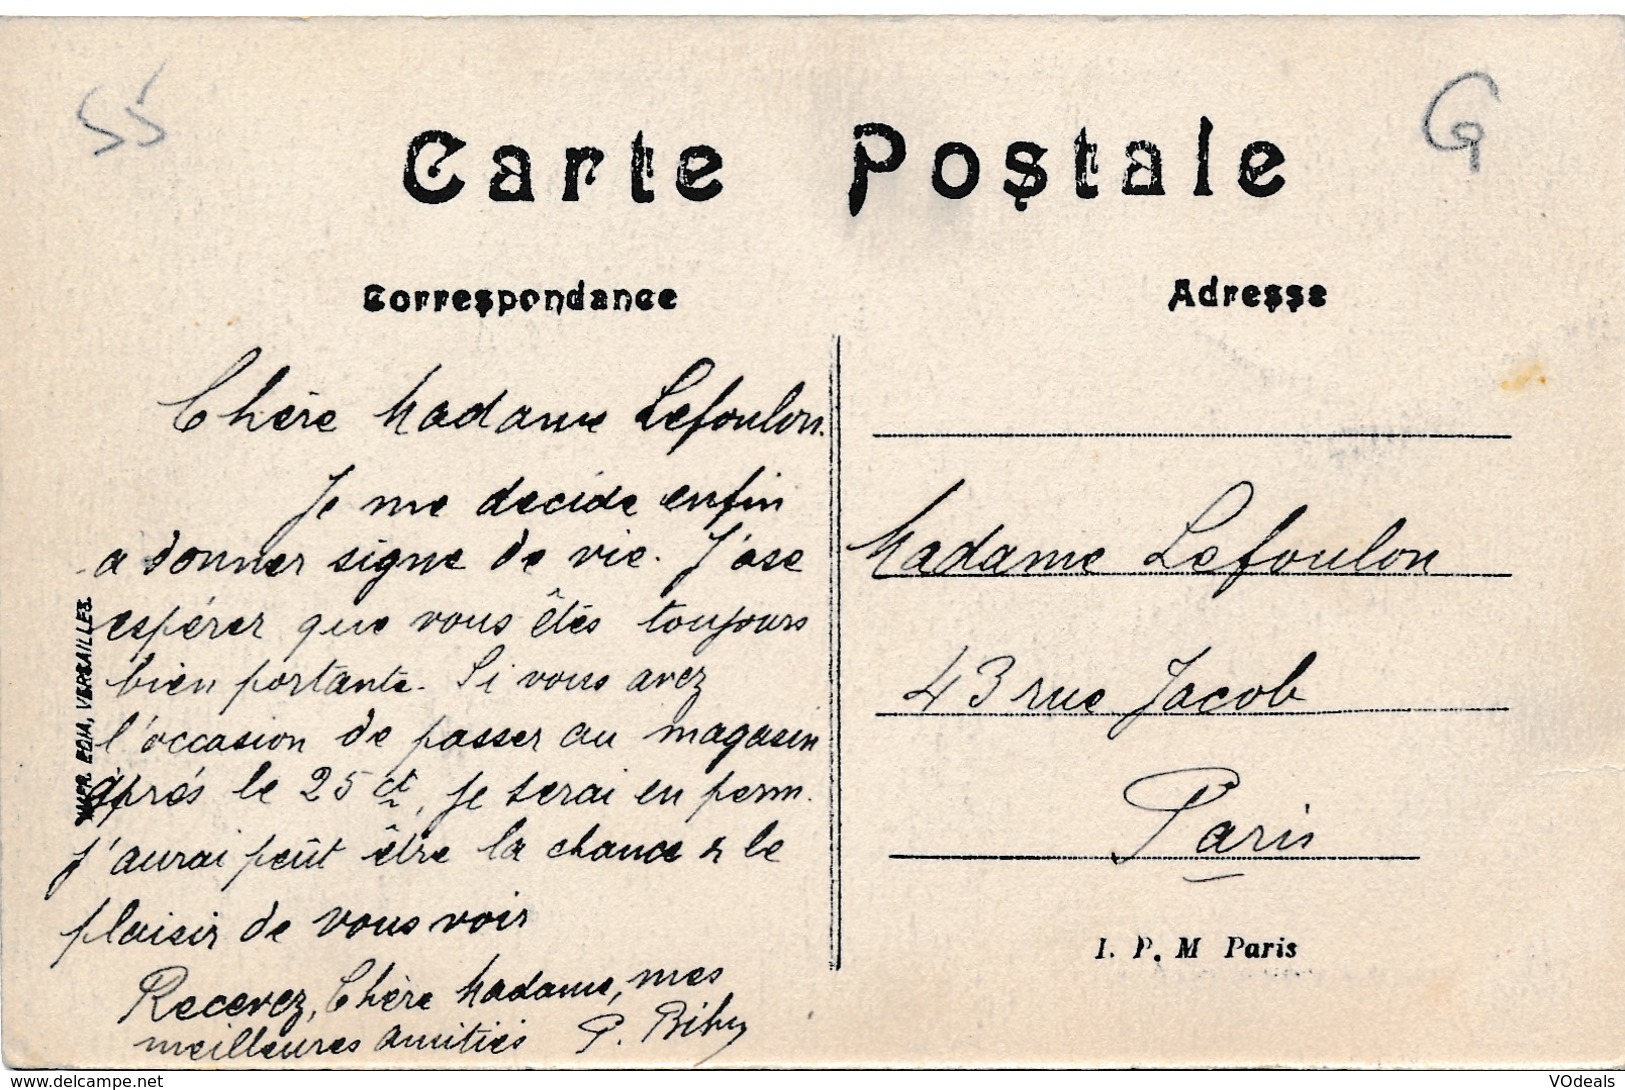 55
G
Carte Postale
Correspondance
Adresse
Chère Madame Lefoulon.
Je me decide enfin
a donner signe de vie. J'ose
espérer que vous êtes toujours
bien portante. Si vous avez
l'occasion de passer au magasin
après le 25 ct, je serai en perm.
J'aurai peût être la chance & le
plaisir de vous voir
Recevez, Chère Madame, mes
meilleures amitiés P. Bihy
Madame Lefoulon
43 rue Jacob
Paris
I. P. M Paris
EDIA, VERSAILLES.
delcampe.net
VOdeals